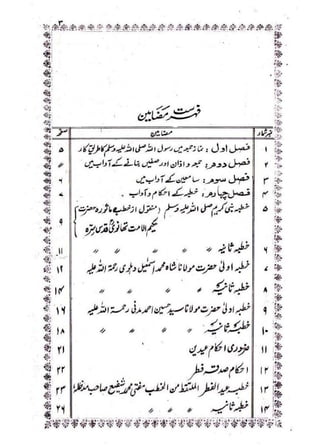 ۳
فہرست مضامین
نمبرشمار مضامین صفحہ
۱ فصل اول: نماز جمعہ میں رسول اللہ صلی اللہ علیہ وسلم کا طریق کار ۵
۲ فصل دوم: جمعہ و اذان اور صفیں بنانے کے آداب میں ۶
۳ فصل سوم: سامعین کے آداب میں ۶
۴ فصل چہارم: خطبہ کے احکام و آداب ۷
۵ خطبہ نبی کریم صلی اللہ علیہ وسلم (منقول از خطب ماثورہ حضرت حکیم الامت تھانوی قدس سرہ) ۹
۶ خطبہ ثانیہ 〃 〃 〃 ۱۱
۷ خطبہ اولیٰ حضرت مولانا شاہ محمد اسمٰعیل دہلوی رحمۃ اللہ علیہ ۱۲
۸ خطبہ ثانیہ 〃 〃 〃 ۱۴
۹ خطبہ اولیٰ حضرت مولانا سید حسین احمد مدنی رحمۃ اللہ علیہ ۱۶
۱۰ خطبہ ثانیہ 〃 〃 〃 ۱۸
۱۱ ضروری احکام عیدین ۲۱
۱۲ احکام صدقہ فطر ۲۲
۱۳ خطبہ عید الفطر الملتقط من الخطب مفتی محمد شفیع صاحب مدظلہ ۲۳
۱۴ خطبہ ثانیہ 〃 〃 〃 ۲۶